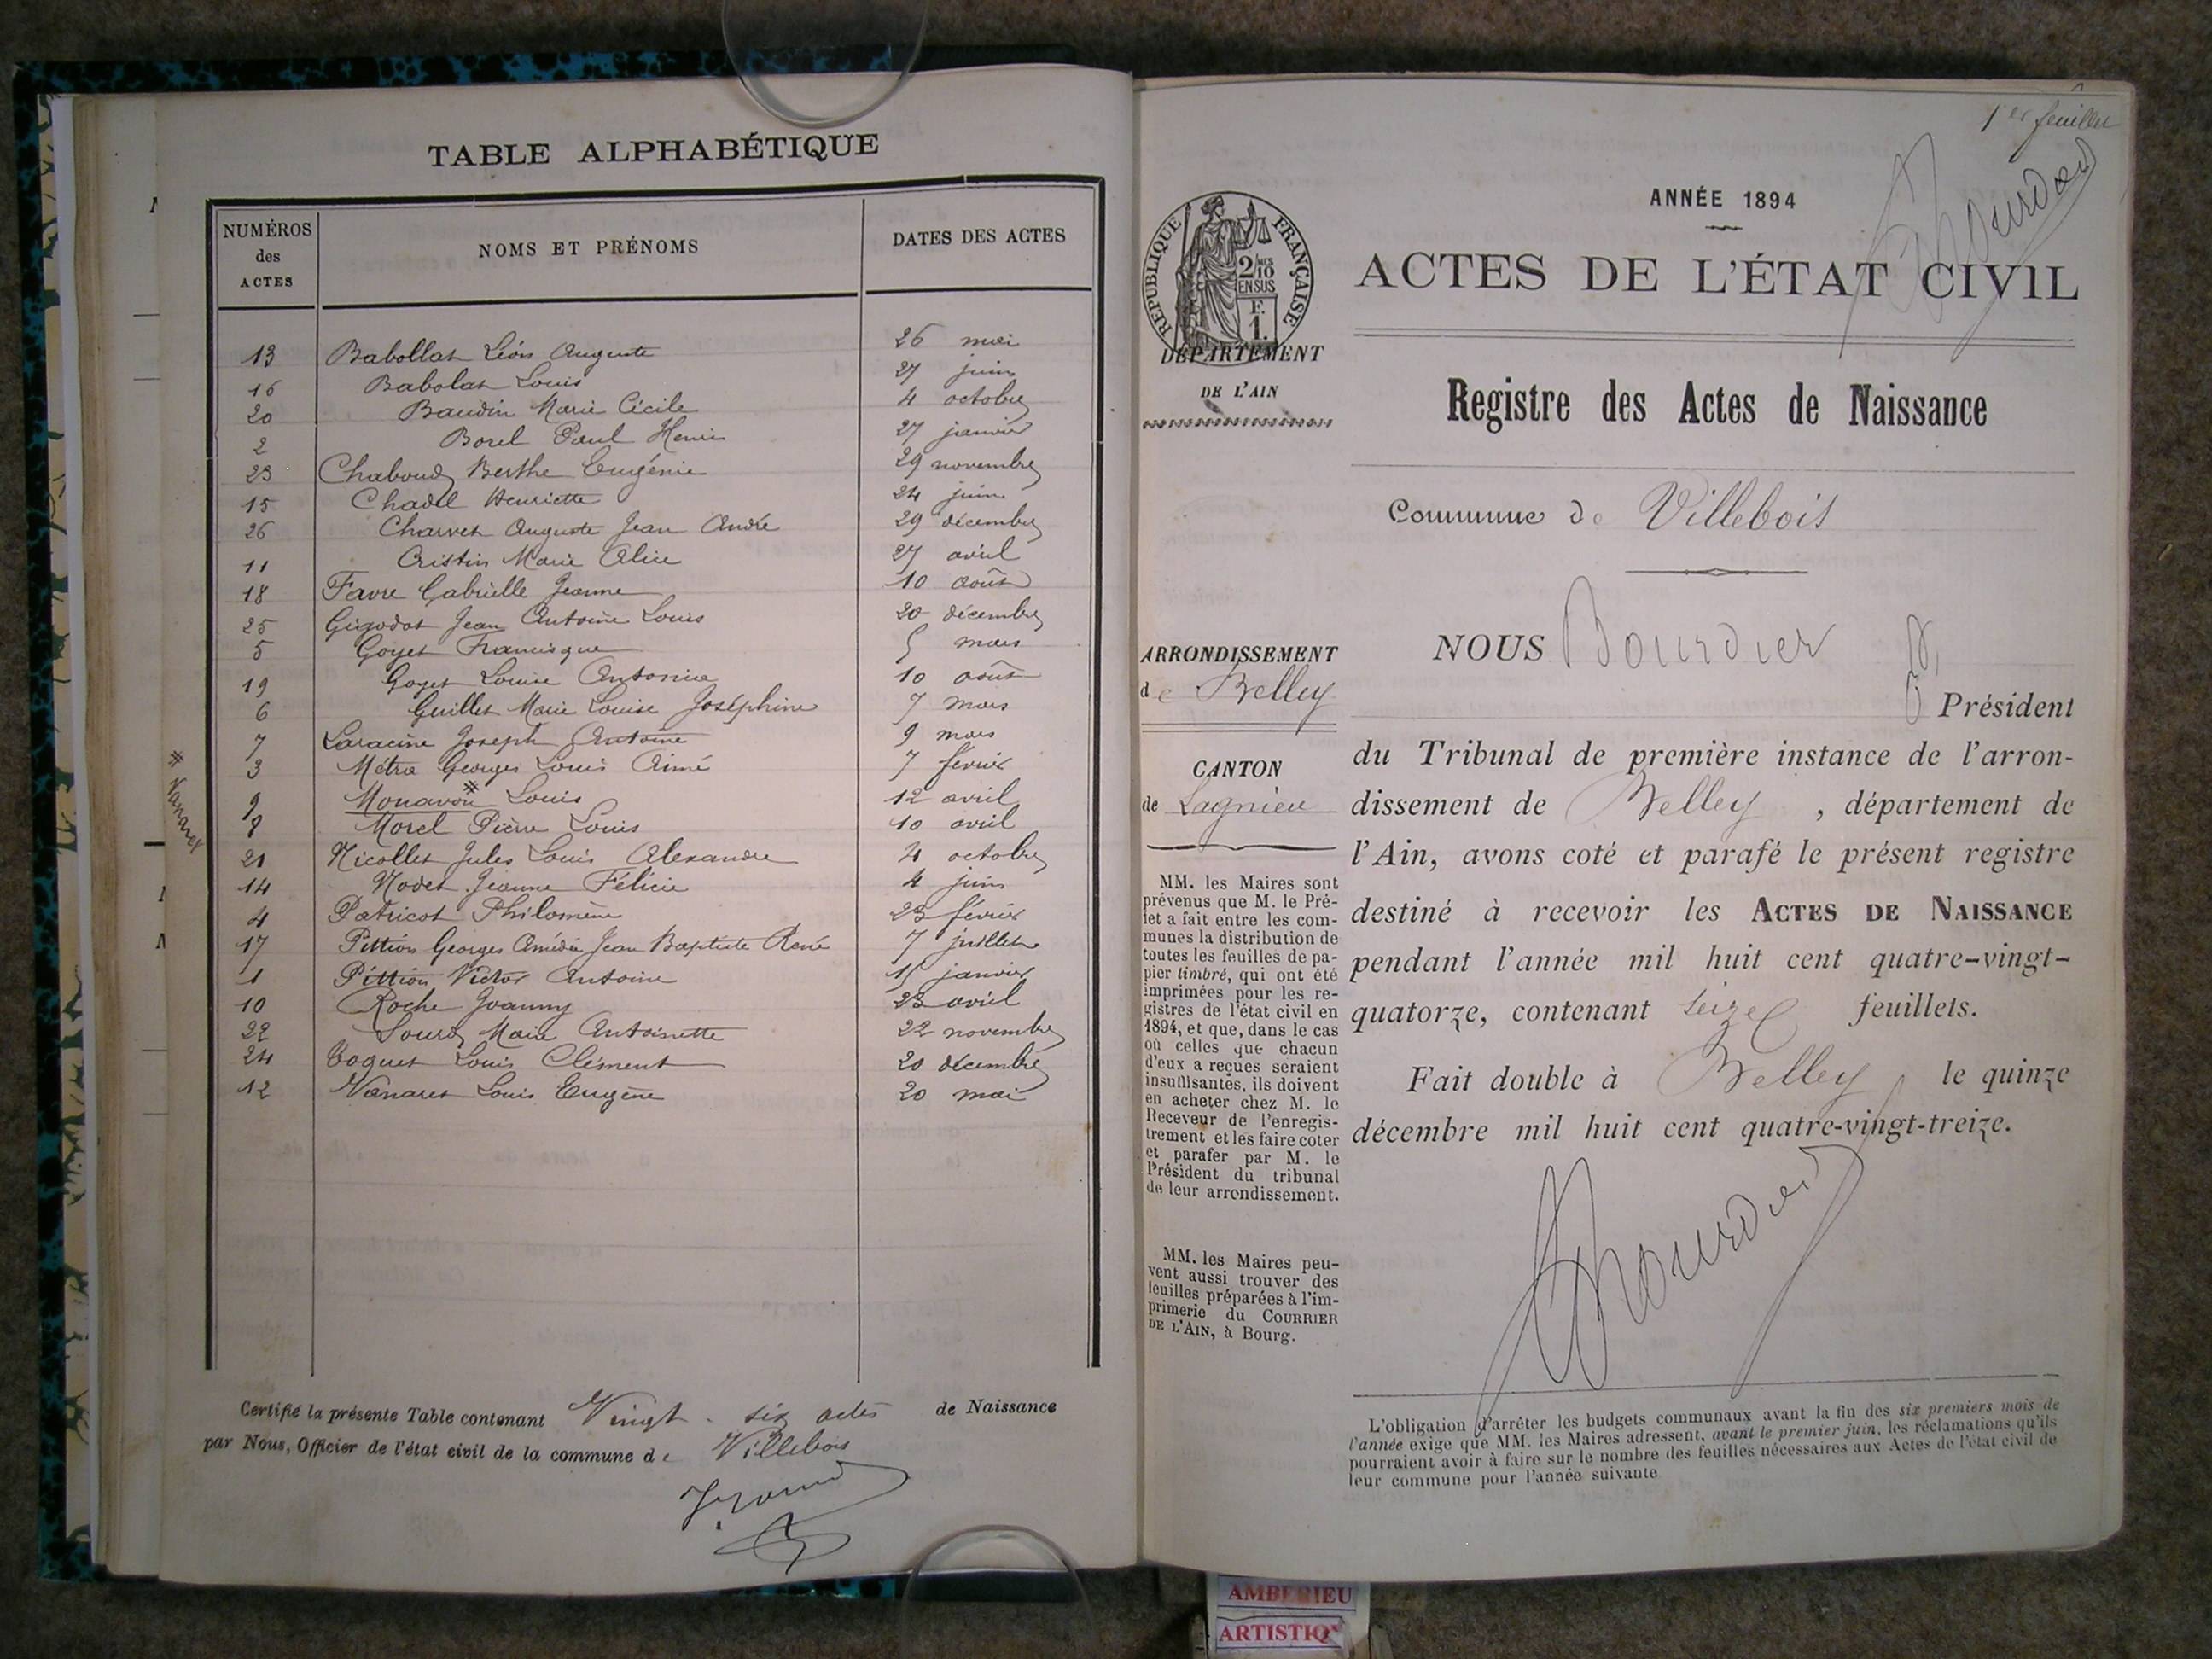 TABLE ALPHABÉTIQUE
NUMÉROS des ACTES
NOMS ET PRÉNOMS
DATES DES ACTES
13 Babollat Léon Auguste 26 mai
16 Babolat Louis 27 juin
20 Baudin Marie Cécile 4 octobre
2 Borel Paul Henri 27 janvier
23 Chaboud Berthe Eugénie 29 novembre
15 Chadel Henriette 24 juin
26 Charvet Auguste Jean André 29 décembre
11 Cristin Marie Alice 27 avril
18 Favre Gabrielle Jeanne 10 août
25 Gigodot Jean Antoine Louis 20 décembre
5 Goyet Francisque 5 mars
19 Goyet Louise Antonia 10 août
6 Guillet Marie Louise Joséphine 7 mars
7 Laracine Joseph Antoine 9 mars
3 Métra Georges Louis Aimé 7 février
9 Monavon * Louis 12 avril
* Vanaret
8 Morel Pierre Louis 10 avril
21 Nicollet Jules Louis Alexandre 4 octobre
14 Nodet Jeanne Félicie 4 juin
4 Patricot Philomène 23 février
17 Pittion Georges Amédée Jean Baptiste René 7 juillet
1 Pittion Victor Antoine 15 janvier
10 Roche Joanny 23 avril
22 Sourd Marie Antoinette 22 novembre
24 Toquet Louis Clément 20 décembre
12 Vanaret Louis Eugène 20 mai
Certifié la présente Table contenant Vingt-six actes de Naissance
par Nous, Officier de l'état civil de la commune de Villebois
1er feuillet
Bourdier
ANNÉE 1894
ACTES DE L'ÉTAT CIVIL
RÉPUBLIQUE FRANÇAISE
2/10 MES
EN SUS
F.
1.
DÉPARTEMENT
DE L'AIN
Registre des Actes de Naissance
Commune de Villebois
ARRONDISSEMENT
de Belley
CANTON
de Lagnieu
MM. les Maires sont
prévenus que M. le Pré-
fet a fait entre les com-
munes la distribution de
toutes les feuilles de pa-
pier timbré, qui ont été
imprimées pour les re-
gistres de l'état civil en
1894, et que, dans le cas
où celles que chacun
d'eux a reçues seraient
insuffisantes, ils doivent
en acheter chez M. le
Receveur de l'enregis-
trement et les faire coter
et parafer par M. le
Président du tribunal
de leur arrondissement.
MM. les Maires peu-
vent aussi trouver des
feuilles préparées à l'im-
primerie du COURRIER
DE L'AIN, à Bourg.
NOUS Bourdier
Président
du Tribunal de première instance de l'arron-
dissement de Belley, département de
l'Ain, avons coté et parafé le présent registre
destiné à recevoir les ACTES DE NAISSANCE
pendant l'année mil huit cent quatre-vingt-
quatorze, contenant seize feuillets.
Fait double à Belley, le quinze
décembre mil huit cent quatre-vingt-treize.
Bourdier
L'obligation d'arrêter les budgets communaux avant la fin des six premiers mois de
l'année exige que MM. les Maires adressent, avant le premier juin, les réclamations qu'ils
pourraient avoir à faire sur le nombre des feuilles nécessaires aux Actes de l'état civil de
leur commune pour l'année suivante
AMBERIEU
ARTISTIQ